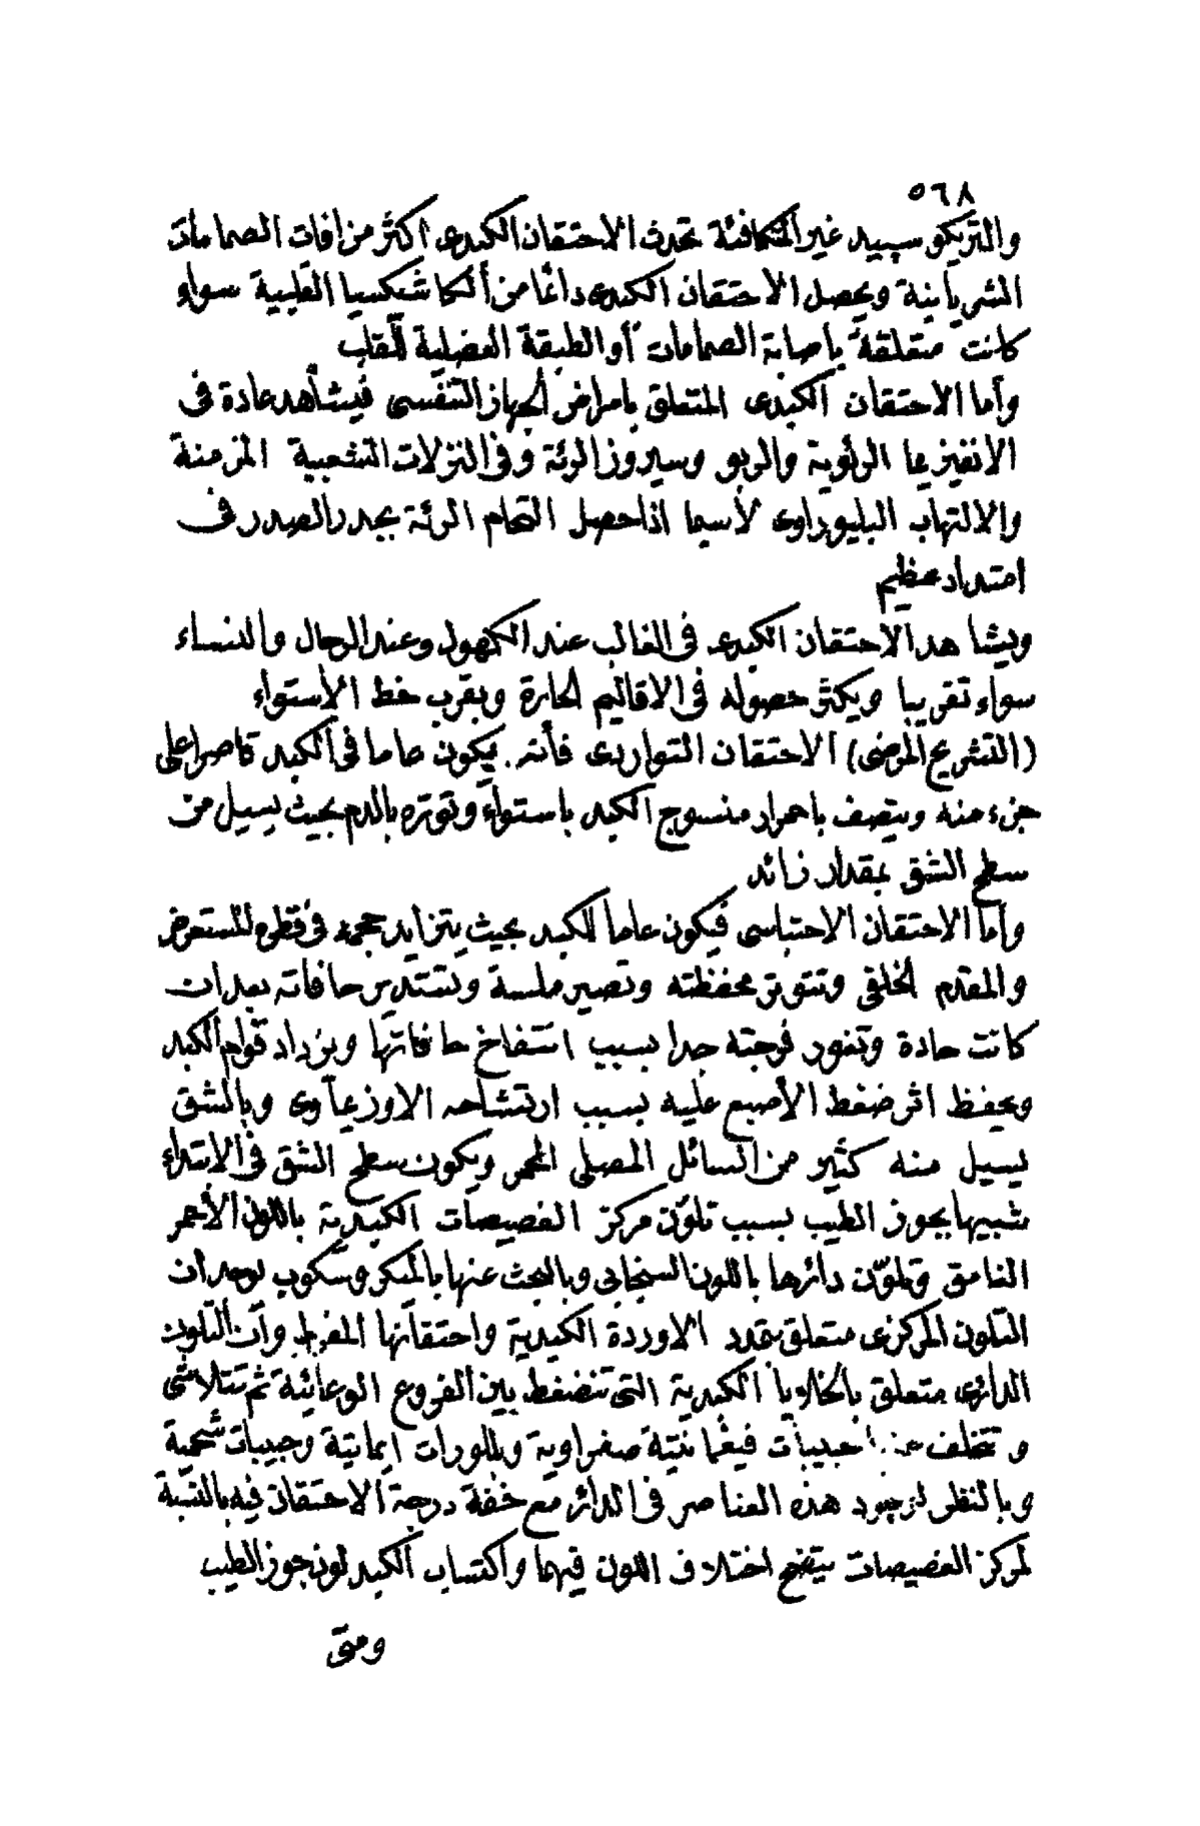 ٥٦٨
والتريكوسبيد غير المتكافئة تحدث الاحتقان الكبدى اكثر من افات الصمامات
الشريانية ويحصل الاحتقان الكبدى دائما من الكاشكسيا القلبية سواء
كانت متعلقة باصابة الصمامات أو الطبقة العضلية للقلب
وأما الاحتقان الكبدى المتعلق بامراض الجهاز التنفسى فيشاهد عادة فى
الانفيزيما الرئوية والربو وسيروز الرئة وفى النزلات الشعبية المزمنة
والالتهاب البليوراوى لاسيما اذا حصل التحام الرئة بجدر الصدر فى
امتداد عظيم
ويشاهد الاحتقان الكبدى فى الغالب عند الكهول وعند الرجال والنساء
سواء تقريبا ويكثر حصوله فى الاقاليم الحارة وبقرب خط الاستواء
(التشريح المرضى) الاحتقان التواردى فأنه يكون عاما فى الكبد قاصرا على
جزء منه ويتصف باحمرار منسوج الكبد باستواء وتوتره بالدم بحيث يسيل من
سطح الشق بمقدار زائد
وأما الاحتقان الاحتباسى فيكون عاما للكبد بحيث يتزايد حجمه فى قطره المستعرض
والمقدم الخلفى وتتوتر محفظته وتصير ملسة وتستدير حافاته بعد ان
كانت حادة وتغور فرجته جدا بسبب انتفاخ حافاتها ويزداد قوام الكبد
ويحفظ اثر ضغط الأصبع عليه بسبب ارتشاحه الاوزيماوى وبالشق
يسيل منه كثير من السائل المصلى المحمر ويكون سطح الشق فى الابتداء
شبيها بجوز الطيب بسبب تلوّن مركز الفصيصات الكبدية باللون الأحمر
الغامق وتلوّن دائرها باللون السنجابى وبالبحث عنها بالميكروسكوب يوجد أن
التلون المركزى متعلق بتمدد الاوردة الكبدية واحتقانها المفرط وأن التلون
الدائرى متعلق بالخلايا الكبدية التى تنضغط بين الفروع الوعائية ثم تتلاشى
وتتخلف عنها حبيبات فيغمانتية صفراوية وبللورات ايماتية وحبيبات شحمية
وبالنظر لوجود هذه العناصر فى الدائر مع خفة درجة الاحتقان فيه بالنسبة
لمركز الفصيصات يتضح اختلاف اللون فيهما واكتساب الكبد لون جوز الطيب
ومتى